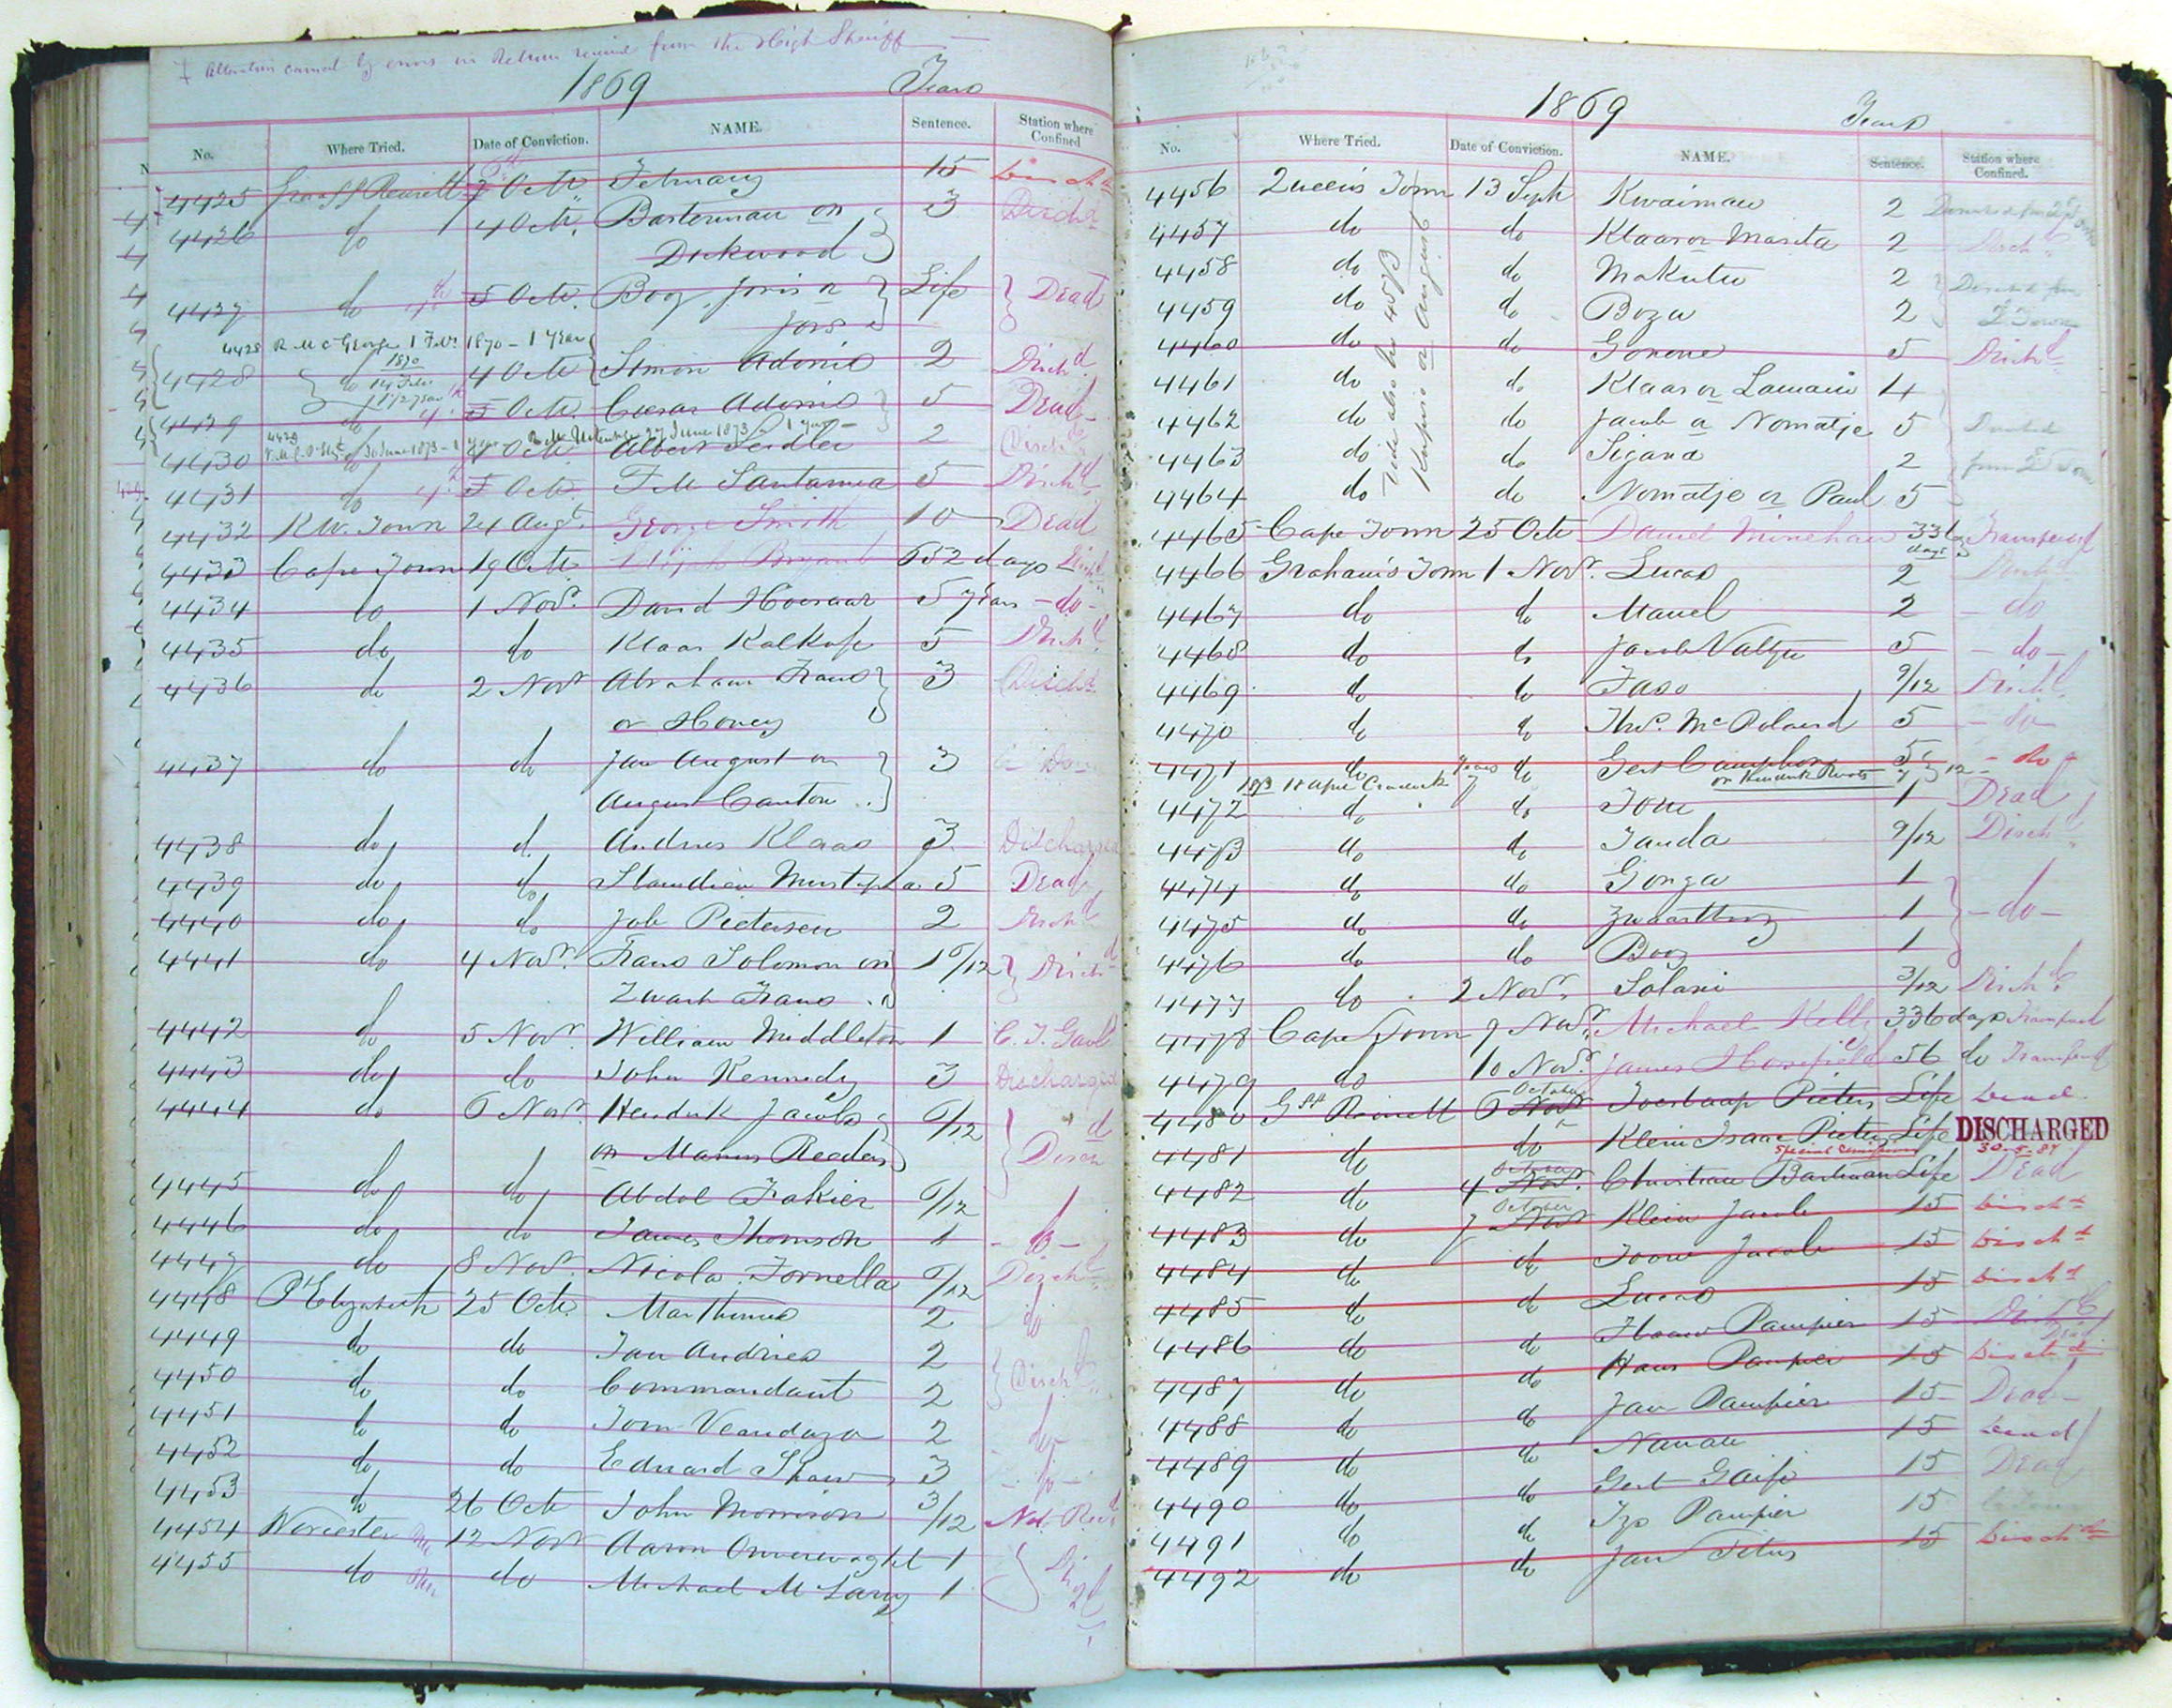 Alteration caused by errors in Return received from the High Sheriff
1869 Years
No. Where Tried. Date of Conviction. NAME. Sentence. Station where Confined
4425 Graaff Reinett 7 Octr February 15 Dischd
4426 do 4 Octr. Basterman or 3 Dischd
Dickwood
4427 do 5 Octr. Booy, Joris or Life Dead
Jors
4428 R M George 1 Feby 1870 - 1 Year
4428 do 4 Octr Simon Adonis 2 Dischd
1870
14 Feby
4429 do 5 Octr. Caesar Adonis 5 Dead
4429 30 June 1873 - 1 year R. M. Uitenhage 27 June 1873 1 year
4430 do 4 Octr Albert Seidler 2 Dischd
4431 do 5 Octr. F M Santamia 5 Dischd
4432 KW. Town 24 Augt. George Smith 10 Dead
4433 Cape Town 19 Octr. Elijah Bryant 652 days Dischd
4434 do 1 Novr. David Hoesaar 5 years - do -
4435 do do Klaas Kalkose 5 Dischd
4436 do 2 Novr Abraham Frans 3 Dischd
or Honey
4437 do do Jan August or 3 do
August Canton
4438 do do Andries Klaas 3 Discharged
4439 do do Slamdien Mustapha 5 Dead
4440 do do Job Pietersen 2 Dischd
4441 do 4 Novr. Frans Solomon or 1 6/12 Dischd
Zwart Frans
4442 do 5 Novr. William Middleton 1 C. T. Gaol
4443 do do John Kennedy 3 Discharged
4444 do 6 Novr. Hendrik Jacobs 6/12 Dischd
or Manus Reeders
4445 do do Abdol Fakier 6/12
4446 do do James Thomson 1 - do -
4447 do 8 Novr. Nicola Fornella 6/12 Dischd
4448 P Elizabeth 25 Octr. Marthinus 2 do
4449 do do Jan Andries 2 Dischd
4450 do do Commandant 2
4451 do do Tom Veandaza 2 - do -
4452 do do Edward Shaw 3 - do -
4453 do 26 Octr John Morrison 3/12 Not Recd
4454 Worcester 12 Novr Aaron Onverwaght 1 Dischd
4455 do do Michael McLarry 1
1869 Years
No. Where Tried. Date of Conviction. NAME. Sentence. Station where Confined.
4456 Queen's Town 13 Septr Kwaiman 2
4457 do do Klaas or Maseta 2 Dischd
4458 do do Makutu 2
4459 do do Boza 2
4460 do do Gonone 5 Dischd
4461 do do Klaas or Lamain 4
4462 do do Jacob or Nomatje 5
4463 do do Sigana 2
4464 do do Nomatje or Paul 5
Vide also No 4573
or August
4465 Cape Town 25 Octr Daniel Minehan 336 days Transferred
4466 Graham's Town 1 Novr. Lucas 2 Dischd
4467 do do Manel 2 - do
4468 do do Jacob Valtyn 5 - do -
4469 do do Faso 9/12 Dischd
4470 do do Thos. McPoland 5 - do -
4471 do do Gert Camphor 5 - do -
1873 18 April Cradock 7 Years or Hendrik 7 12
4472 do do Tom 1 Dead
4473 do do Tanda 9/12 Dischd
4474 do do Gonza 1
4475 do do Zwaartbooy 1 - do -
4476 do do Booy 1
4477 do 2 Novr. Solani 3/12 Dischd
4478 Cape Town 9 Novr. Michael Kelly 336 days Transferred
4479 do 10 Novr. James Horsfield 56 do Transferred
4480 Gff Reinett 6 Novr October Toestaap Pieters Life Dead
4481 do do Klein Isaac Pieters Life DISCHARGED
Special Remission 30-5-87
4482 do 4 Novr. October Christian Bastman Life Dead
4483 do 7 Novr October Klein Jacob 15 Dischd
4484 do do Toon Jacob 15 Dischd
4485 do do Lucas 15 Dischd
4486 do do Slaauw Pampier 15 Dead
4487 do do Hans Pampier 15 Dischd
4488 do do Jan Pampier 15 Dead
4489 do do Nanau 15 Dead
4490 do do Gert Gaise 15 Dead
4491 do do Izo Pampier 15
4492 do do Jan Titus 15 Dischd